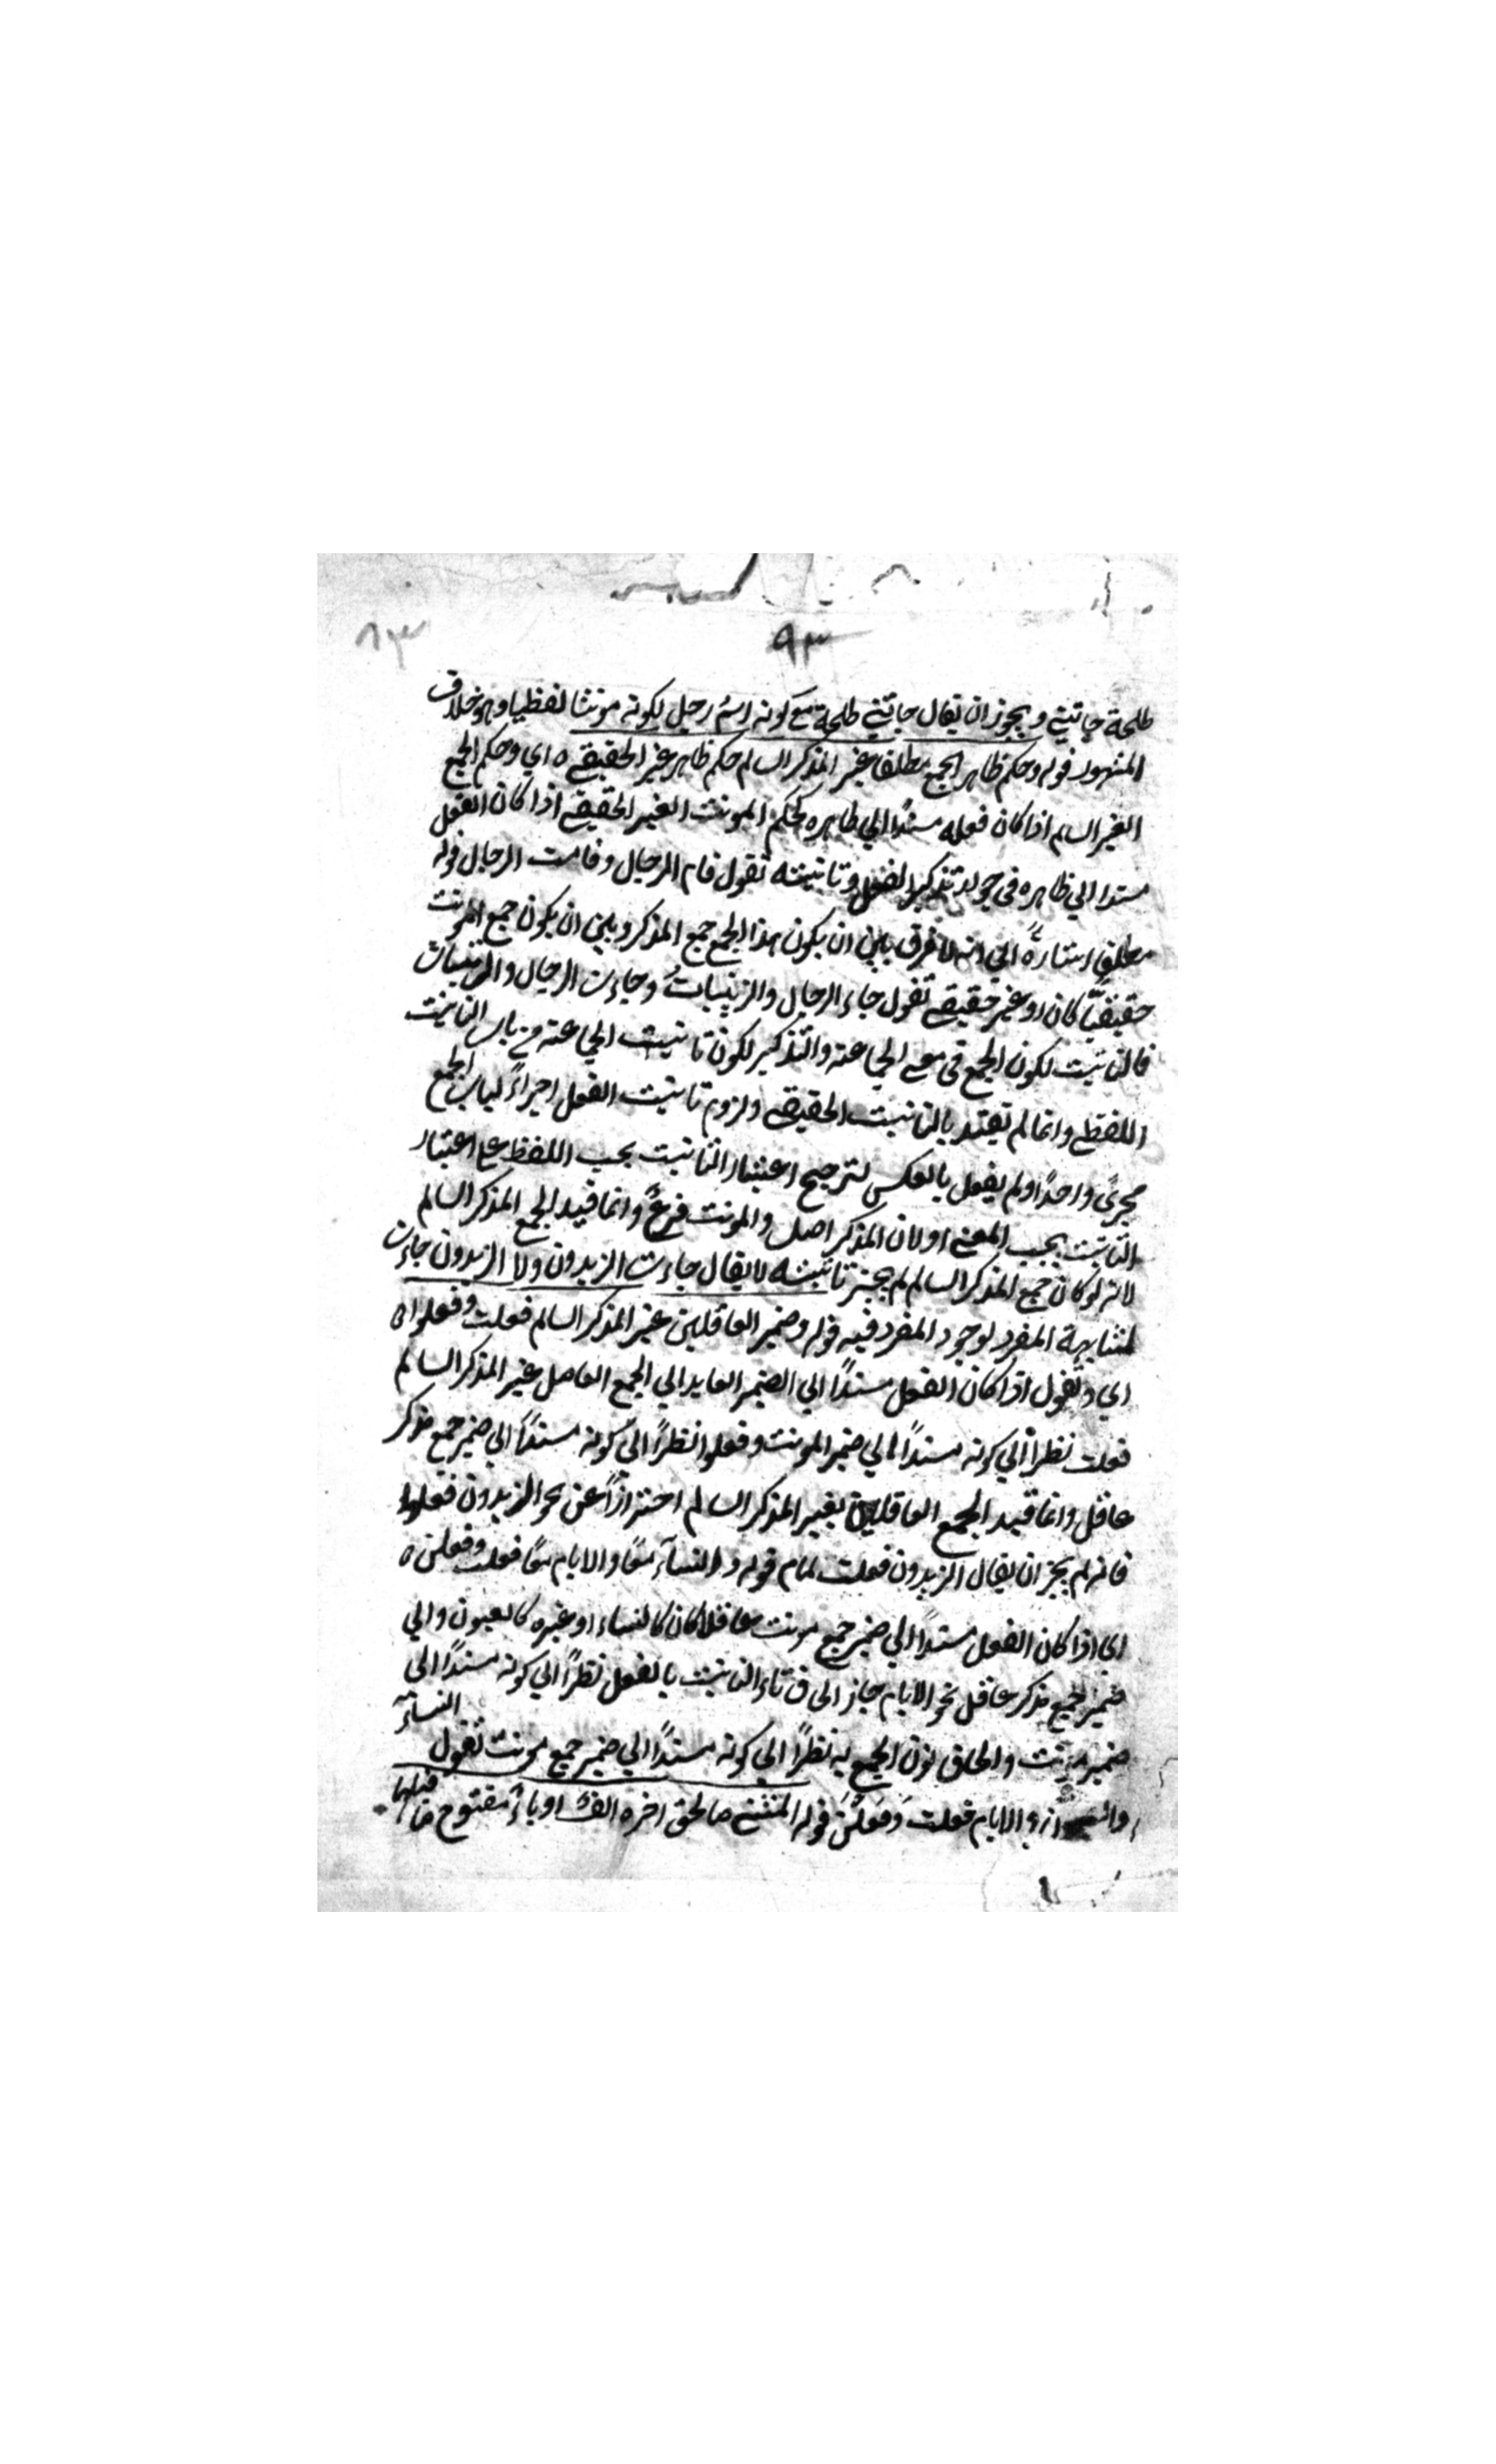 ٩٣
٨٣
طلحة جاتنى ويجوز ان يقال جاتنى طلحة مع كونه اسم رجل لكونه مونثا لفظيا وهو خلاف
المشهور قوله وحكم ظاهر الجمع مطلقا غير المذكر السالم حكم ظاهر غير الحقيقى ه اي وحكم الجمع
الغير السالم اذا كان فعله مسندًا الي ظاهره كحكم المونث الغير الحقيقى اذا كان الفعل
مسندا الي ظاهره فى جواز تذكير الفعل وتانيثه تقول قام الرجال وقامت الرجال قوله
مطلقا اشارةً الي انه لا فرق بين ان يكون هذا الجمع جمع المذكر وبين ان يكون جمع المونث
حقيقيًّا كان او غير حقيقى تقول جاء الرجال والزينبات وجاءت الرجال والزينبات
فالتانيث لكون الجمع فى معنى الجماعة والتذكير لكون تانيث الجماعة من باب التانيث
اللفظى وانما لم يعتد بالتانيث الحقيقى ولزوم تانيث الفعل اجراءً لباب الجمع
مجرًى واحدًا ولم يفعل بالعكس لترجيح اعتبار التانيث بحسب اللفظ على اعتبار
التانيث بحسب المعنى او لان المذكر اصل والمونث فرعٌ وانما قيد الجمع المذكر السالم
لانه لو كان جمع المذكر السالم لم يجز تانيثه لا يقال جاءت الزيدون ولا الزيدون جاءت
لمشابهة المفرد لوجود المفرد فيه قوله وضمير العاقلين غير المذكر السالم فعلت وفعلوا ه
اي وتقول اذا كان الفعل مسندًا الي الضمير العايد الي الجمع العاقل غير المذكر السالم
فعلت نظرًا الي كونه مسندًا الي ضمير المونث وفعلوا نظرًا الي كونه مسندًا الي ضمير جمع مذكر
عاقل وانما قيد الجمع العاقلين بغير المذكر السالم احترازًا عن نحو الزيدون فعلوا
فانه لم يجز ان يقال الزيدون فعلت لمام قوله والنسآء معًا والايام معًا فعلت وفعلن ه
اى اذا كان الفعل مسندًا الي ضمير جمع مونث عاقلا كان كالنساء او غيره كالعيون والي
ضمير جمع مذكر عاقل نحو الايام جاز الحاق تاء التانيث بالفعل نظرًا الي كونه مسندًا الى
ضمير مونث والحاق نون الجمع به نظرًا الي كونه مسندًا الي ضمير جمع مونث تقول النسآء
والايام فعلت وَفَعَلْنَ قوله المثنى ما لحق اخره الفٌ او ياءٌ مفتوح ما قبلها